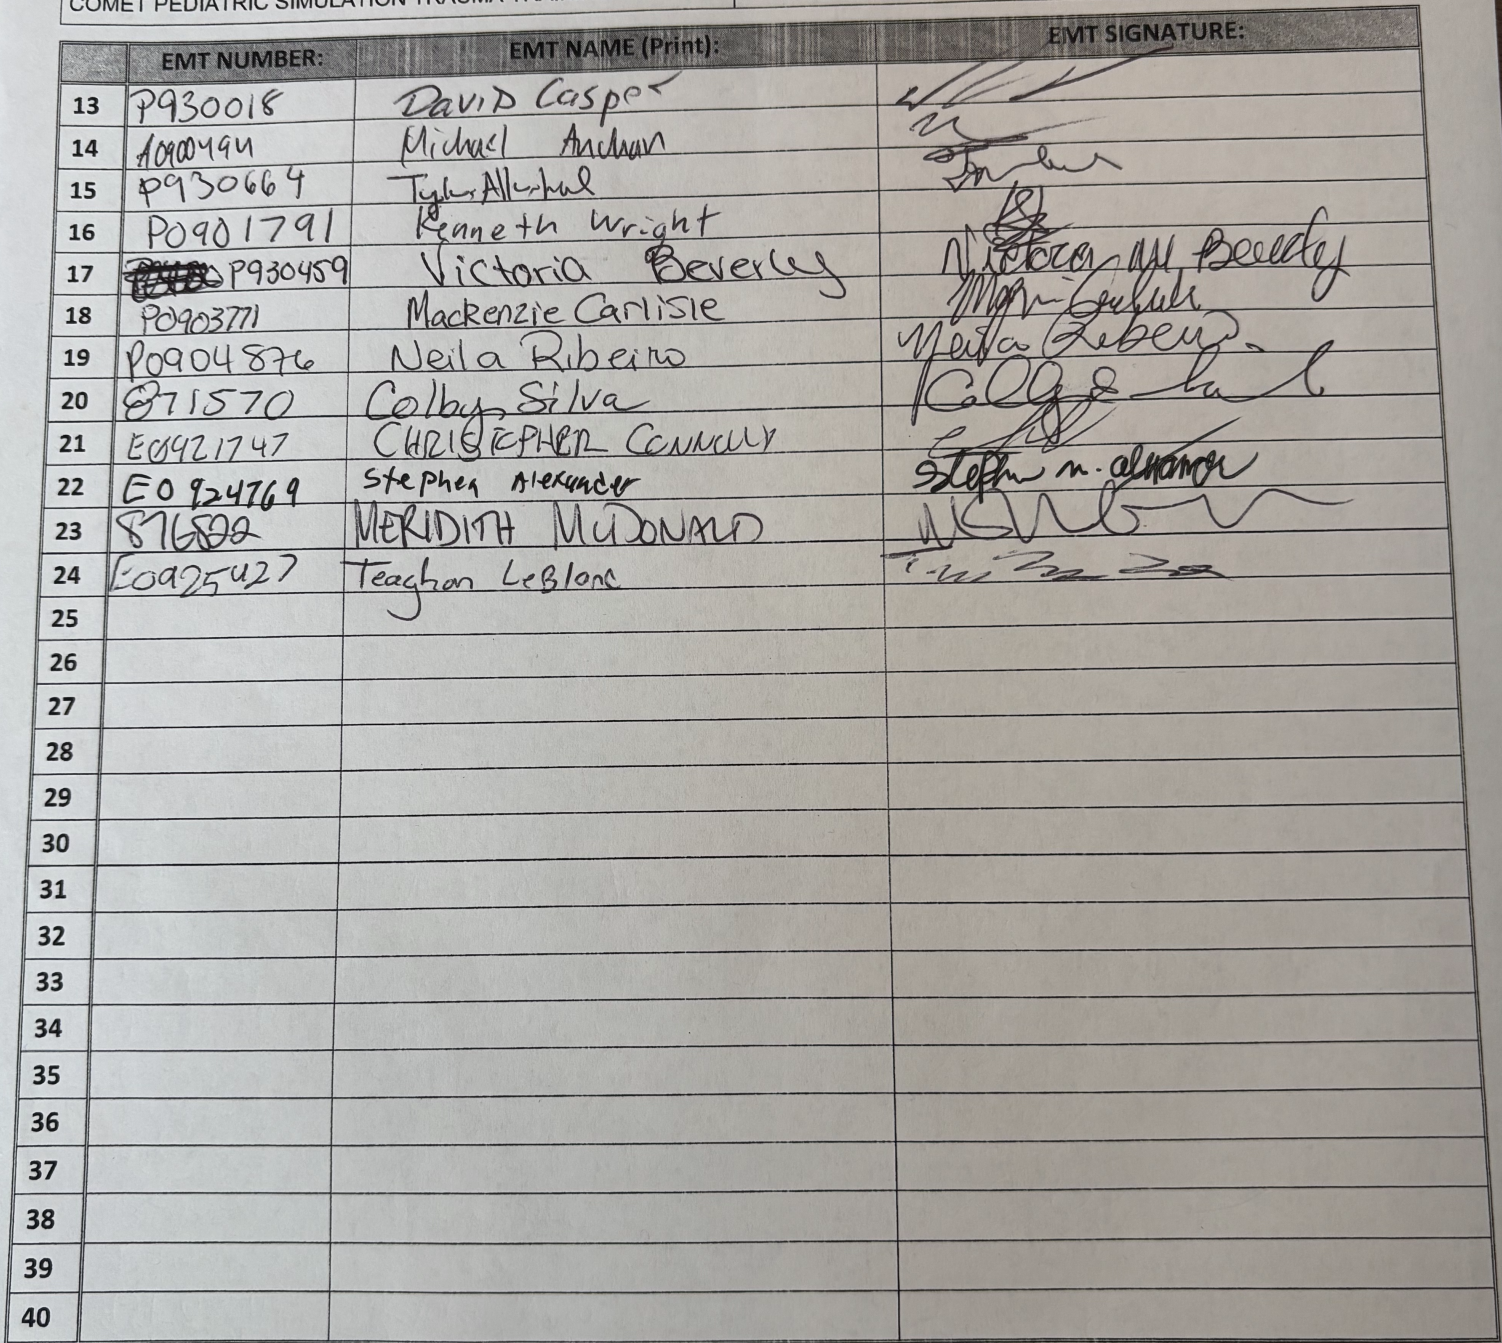 COMET PEDIATRIC SIMULATION TRAUMA
EMT NUMBER: EMT NAME (Print): EMT SIGNATURE:
13 P930018 DaviD Casper
14 A0900494 Michael
15 P930664 Tyler
16 P0901791 Kenneth Wright
17 P930459 Victoria Beverley Victoria M Beverley
18 P0903771 Mackenzie Carlisle
19 P0904876 Neila Ribeiro Neila Ribeiro
20 871570 Colby Silva
21 E0921747 CHRISTOPHER CONNOLLY
22 E0924769 Stephen Alexander Stephen M. Alexander
23 876822 MERIDITH McDONALD
24 E0925427 Teaghan LeBlanc
25
26
27
28
29
30
31
32
33
34
35
36
37
38
39
40